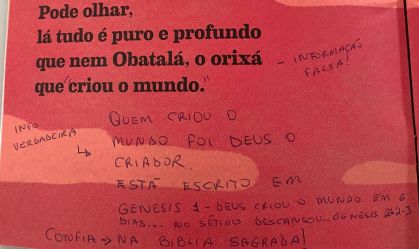 Pode olhar,
lá tudo é puro e profundo
que nem Obatalá, o orixá
que "criou o mundo."
- INFORMAÇÃO
FALSA!
INFO
VERDADEIRA
QUEM CRIOU O
MUNDO FOI DEUS O
CRIADOR.
ESTÁ ESCRITO EM
GENESIS 1 - DEUS CRIOU O MUNDO EM 6
DIAS... NO SÉTIMO DESCANSOU... GENESIS 2:2-3
CONFIA → NA BIBLIA SAGRADA!